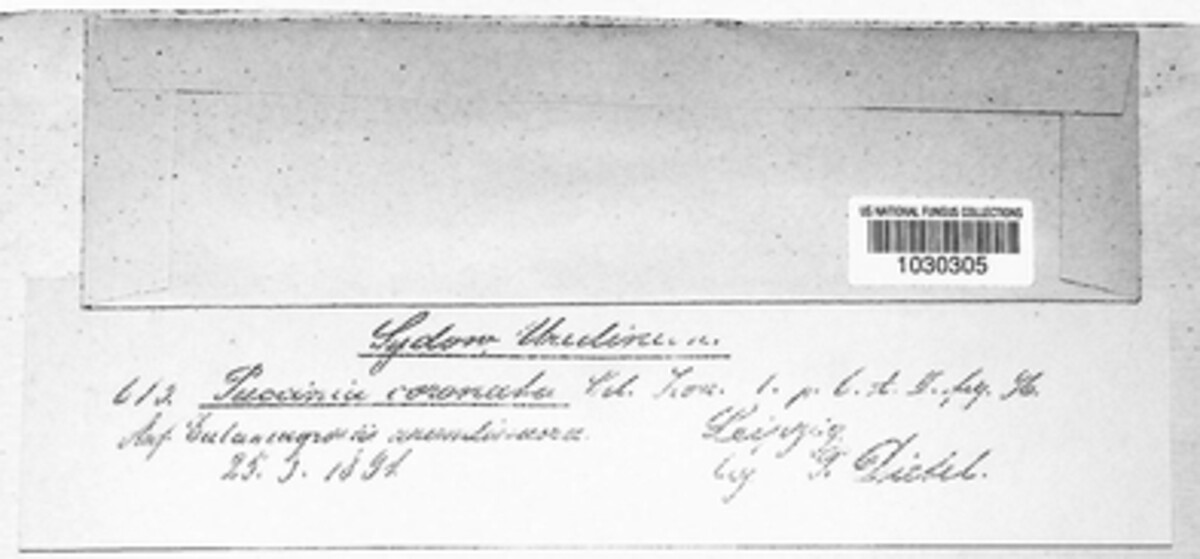 US NATIONAL FUNGUS COLLECTIONS
1030305
Sydow, Uredineen.
613. Puccinia coronata Cd. f. p. t.
Auf Calamagrostis arundinacea.
Leipzig
25. 3. 1891
leg P. Dietel.